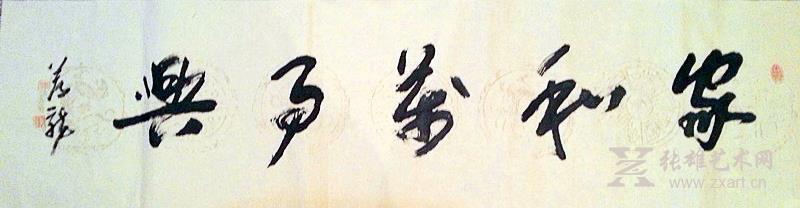 家和萬事興
张雄艺术网
www.zxart.cn